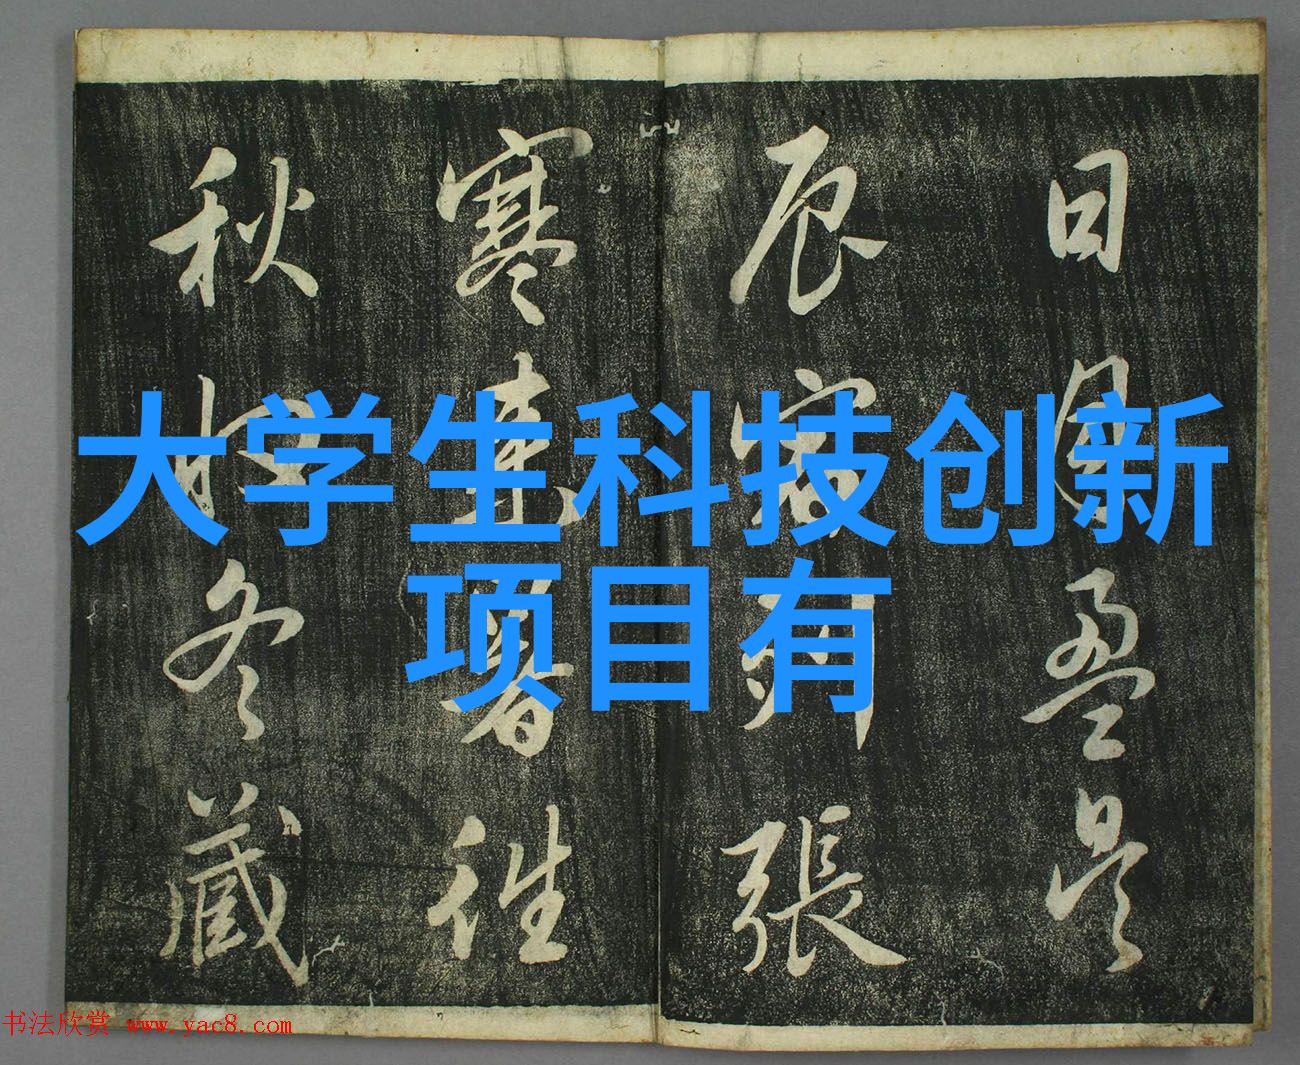 日月盈昃
辰宿列張
寒來暑往
秋收冬藏
大学生科技创新
项目有
书法欣赏 www.yac8.com